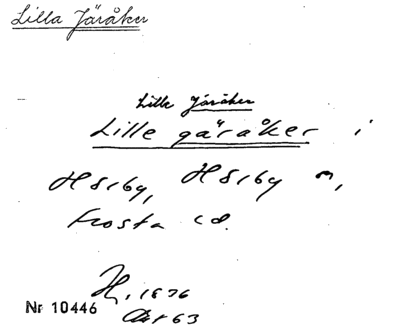 Lilla Järåker
Lille Järåker
Lille gäråker i
Hörby, Hörby sn,
Frosta hd.
H, 1876
Art 63
Nr 10446